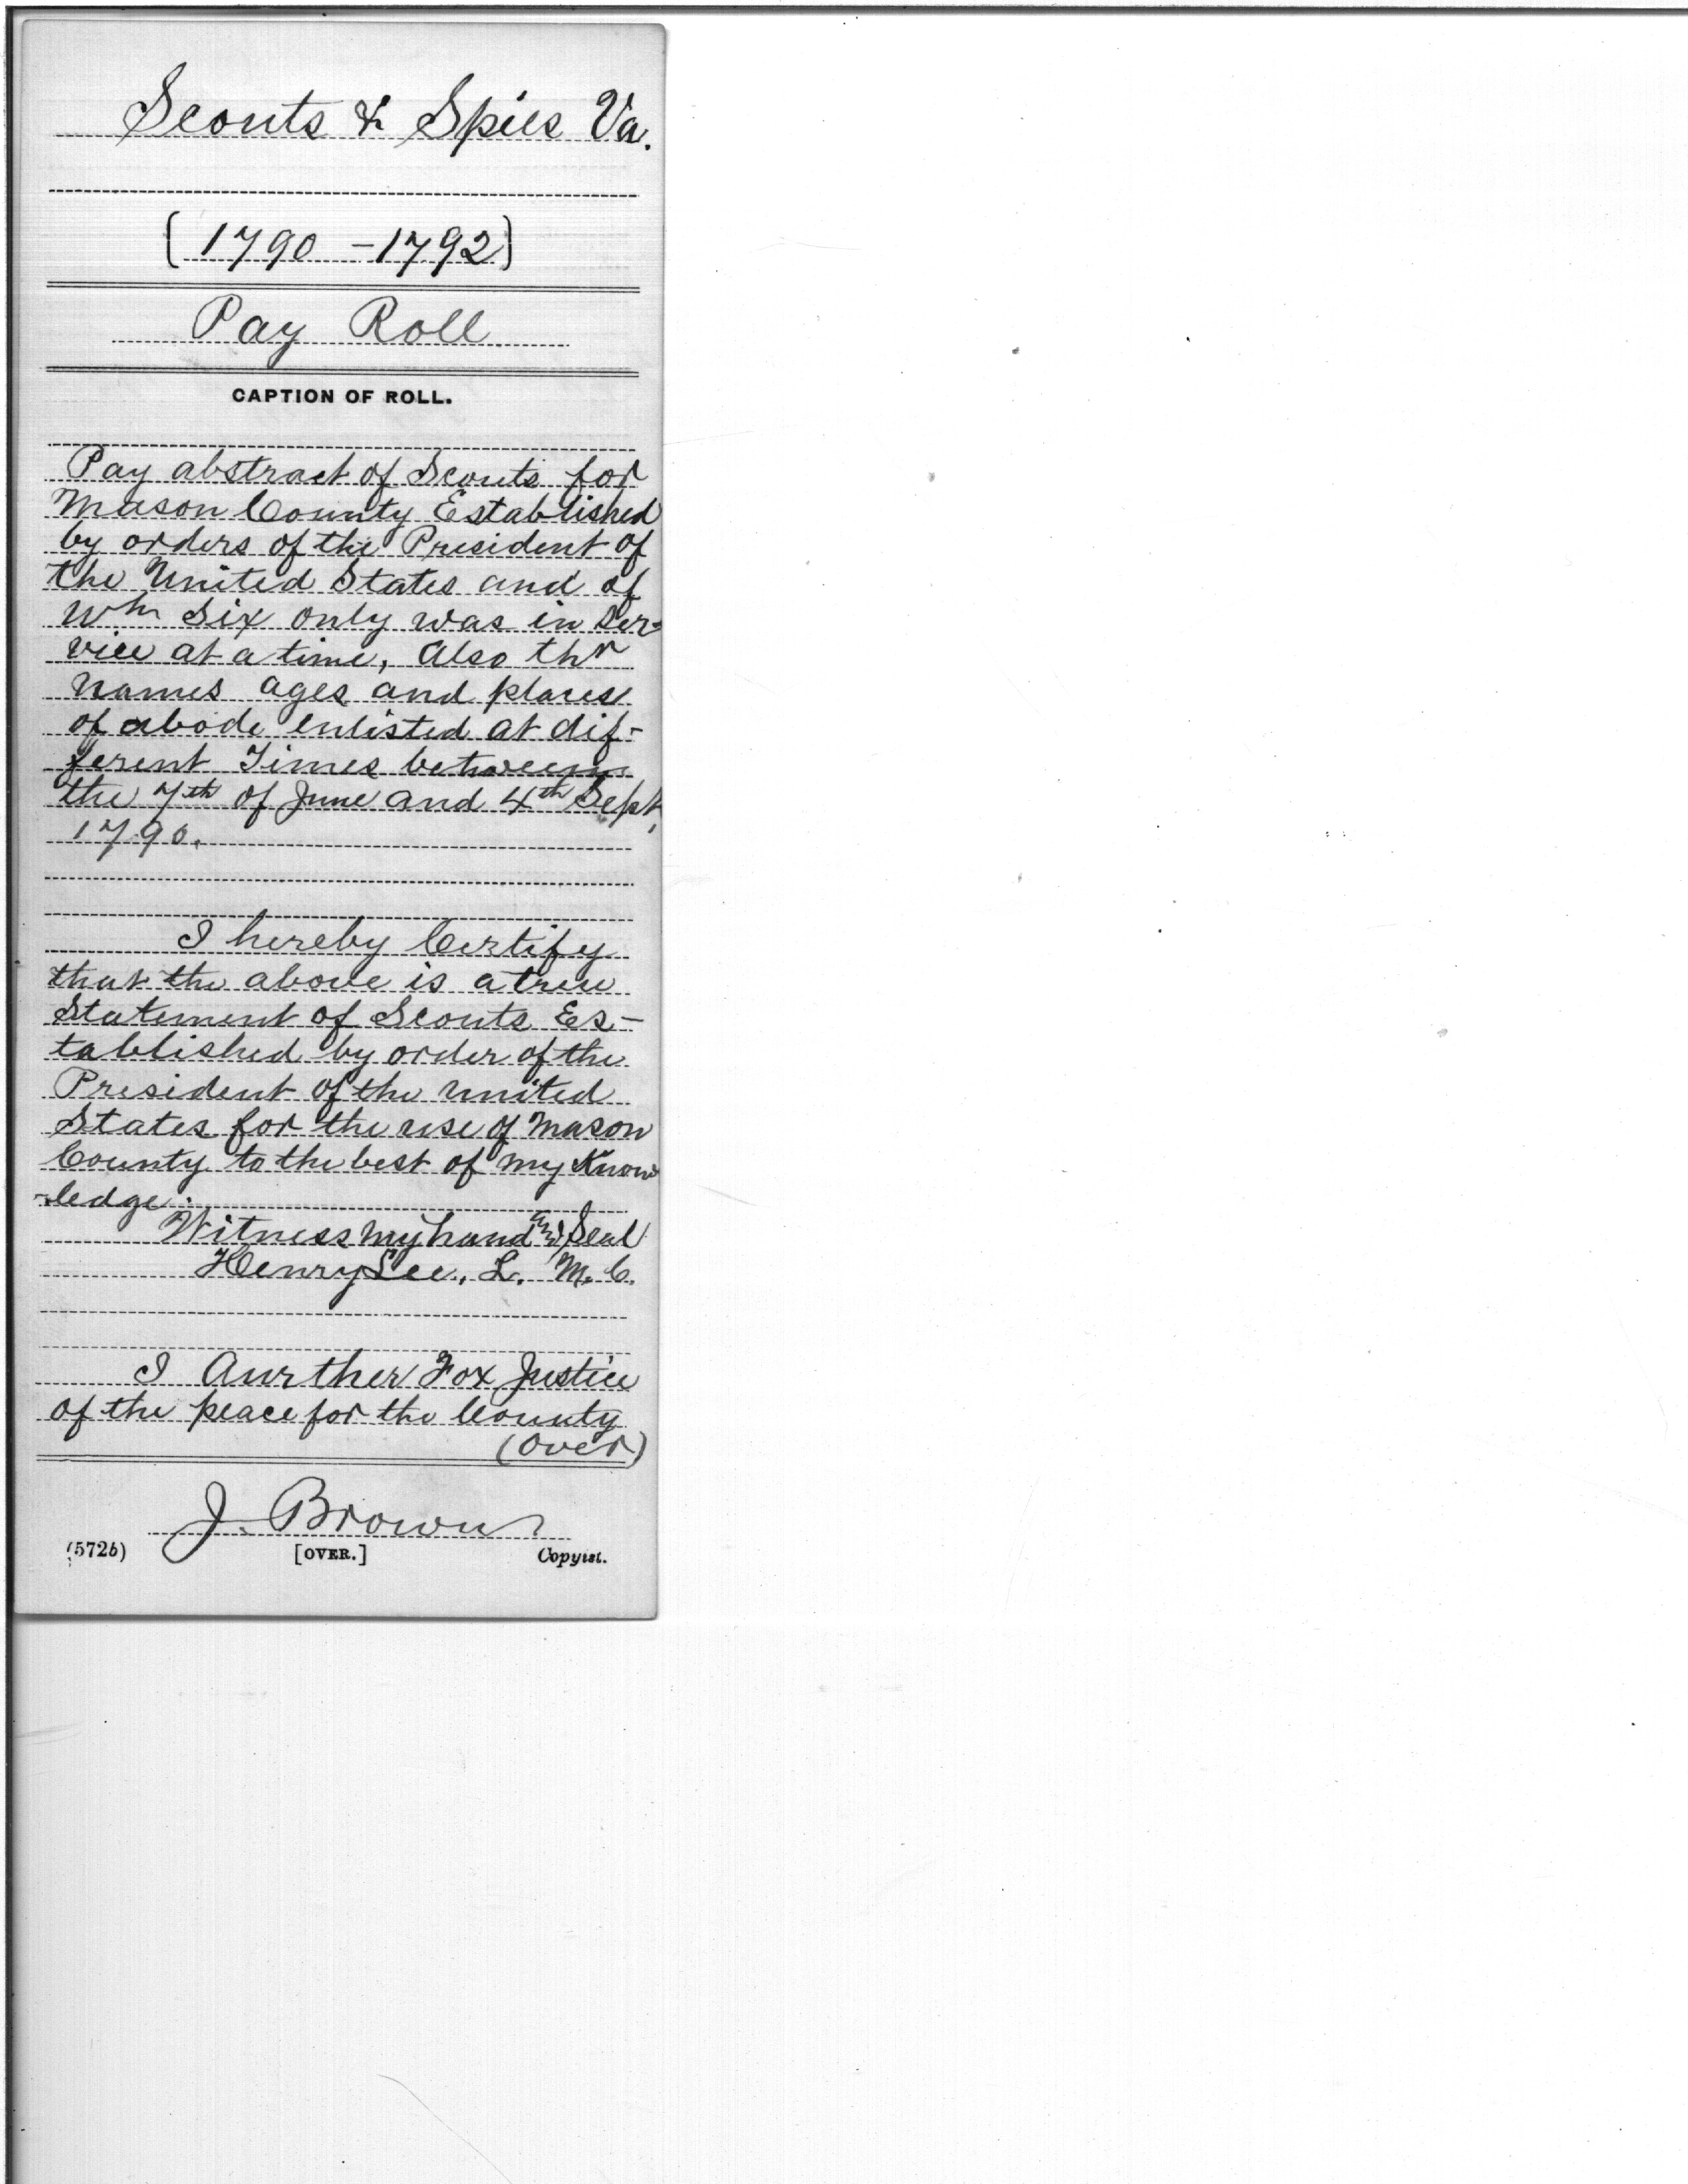 Scouts & Spies Va.
(1790 - 1792)
Pay Roll
CAPTION OF ROLL.
Pay abstract of Scouts for
Mason County Established
by orders of the President of
the United States and of
Wh Six only was in Ser-
vice at a time, Also thr
names ages and places
of abode enlisted at dif-
ferent Times between
the 7th of June and 4th Sept,
1790.
I hereby Certify
that the above is a true
Statement of Scouts Es-
tablished by order of the
President of the united
States for the use of Mason
County to the best of my Know
-ledge.
Witness my hand and Seal
Henry Lee, L. M. C.
I Aurther Fox Justice
of the peace for the County
(over)
J. Brown
(572b) [OVER.] Copyist.